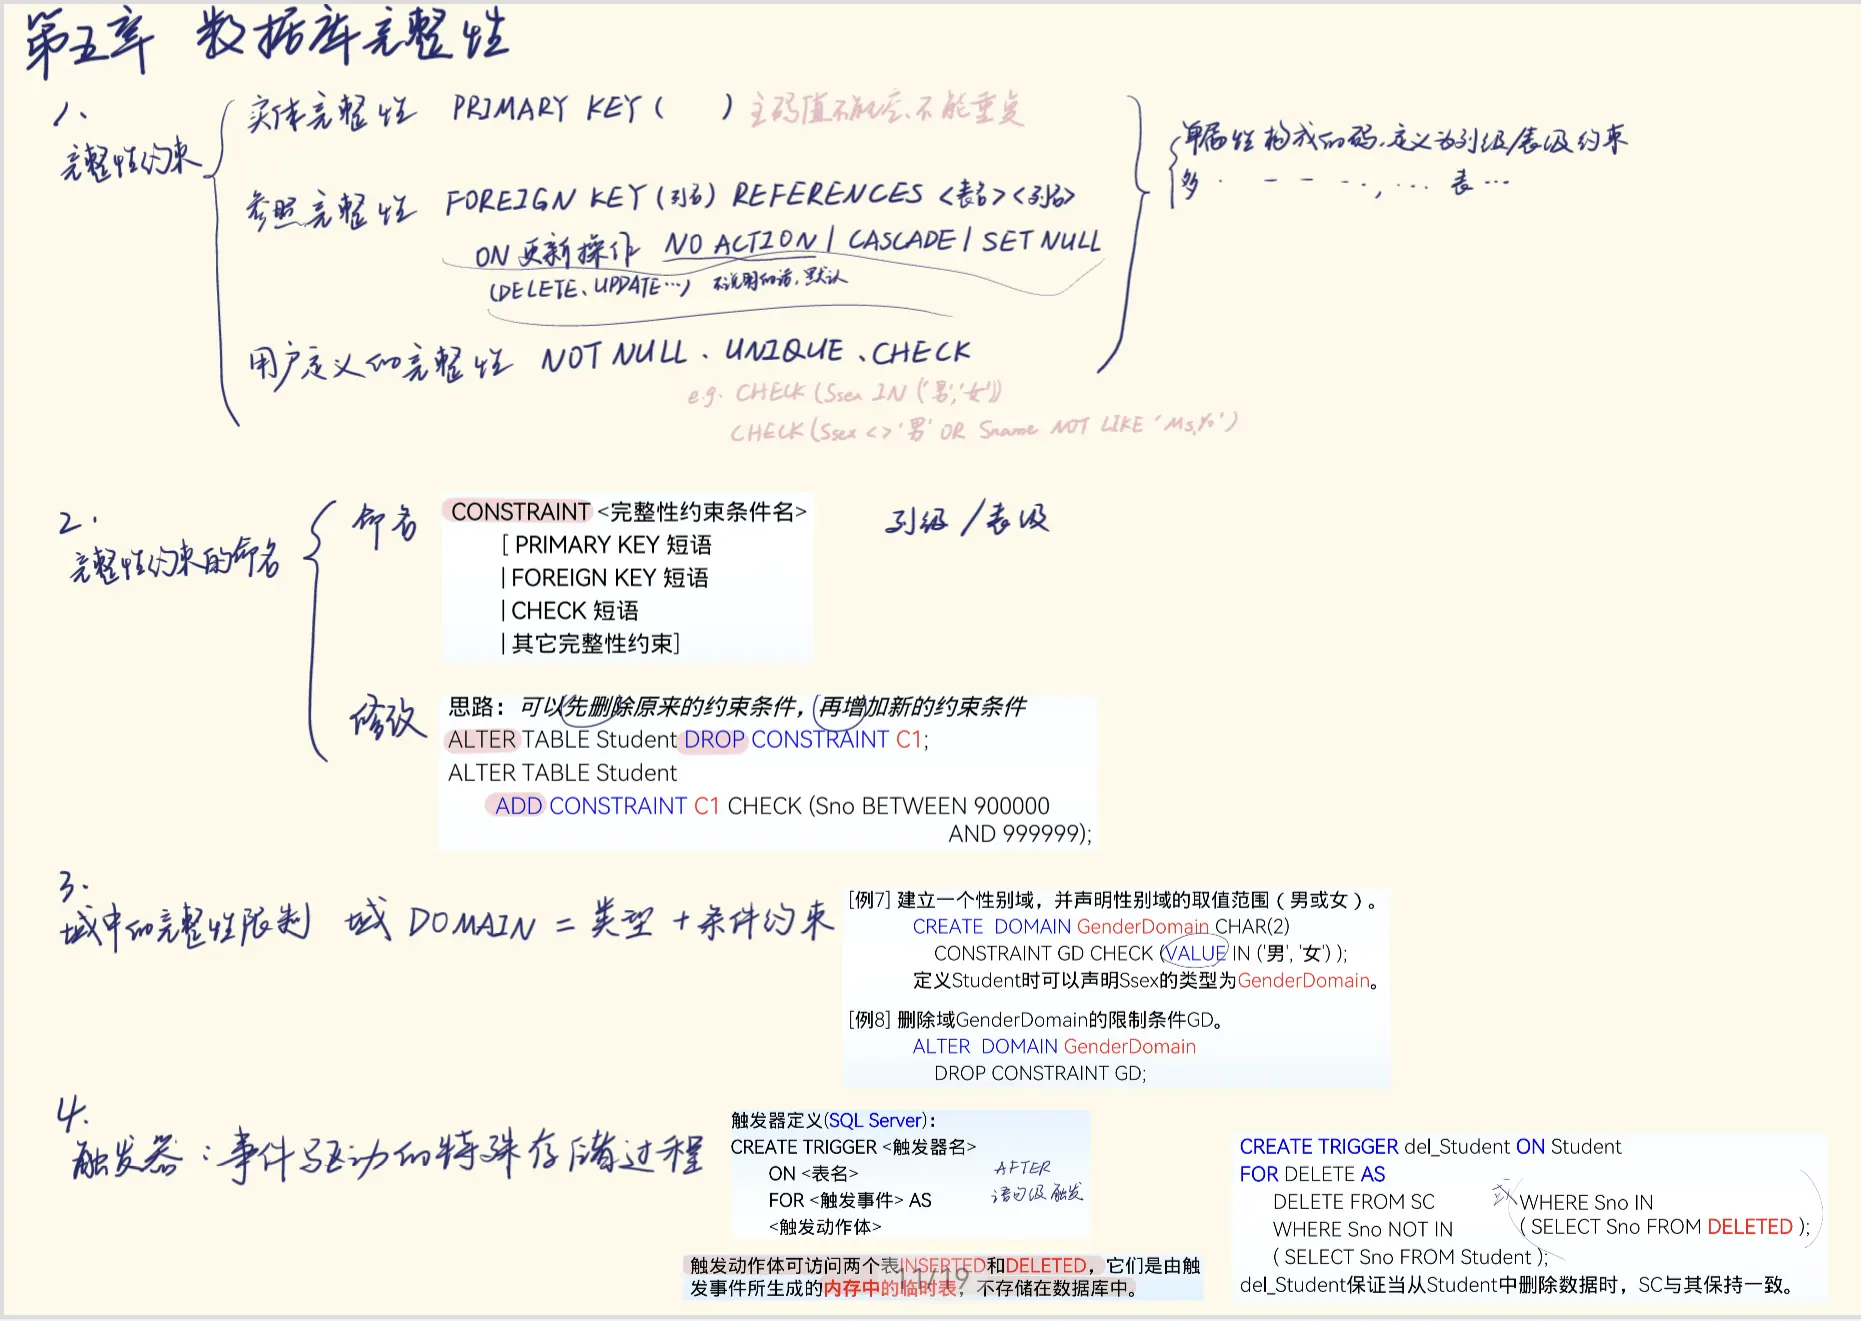 第五章 数据库完整性
1、
完整性约束
实体完整性 PRIMARY KEY ( ) 主码值不能空、不能重复
参照完整性 FOREIGN KEY (列名) REFERENCES <表名><列名>
ON 更新操作 NO ACTION | CASCADE | SET NULL
(DELETE、UPDATE…) 不说明的话,默认
用户定义的完整性 NOT NULL、UNIQUE、CHECK
e.g. CHECK (Ssex IN ('男','女'))
CHECK (Ssex <> '男' OR Sname NOT LIKE 'Ms.%')
单属性构成的码,定义为列级/表级约束
多 · – – – ··, ··· 表 ···
2.
完整性约束的命名
命名
CONSTRAINT <完整性约束条件名>
[ PRIMARY KEY 短语
| FOREIGN KEY 短语
| CHECK 短语
| 其它完整性约束]
列级 / 表级
修改
思路:可以先删除原来的约束条件,再增加新的约束条件
ALTER TABLE Student DROP CONSTRAINT C1;
ALTER TABLE Student
ADD CONSTRAINT C1 CHECK (Sno BETWEEN 900000
AND 999999);
3.
域中的完整性限制 域 DOMAIN = 类型 + 条件约束
[例7] 建立一个性别域,并声明性别域的取值范围(男或女)。
CREATE DOMAIN GenderDomain CHAR(2)
CONSTRAINT GD CHECK (VALUE IN ('男', '女') );
定义Student时可以声明Ssex的类型为GenderDomain。
[例8] 删除域GenderDomain的限制条件GD。
ALTER DOMAIN GenderDomain
DROP CONSTRAINT GD;
4.
触发器:事件驱动的特殊存储过程
触发器定义(SQL Server):
CREATE TRIGGER <触发器名>
ON <表名>
FOR <触发事件> AS
<触发动作体>
AFTER
语句级触发
触发动作体可访问两个表INSERTED和DELETED,它们是由触
发事件所生成的内存中的临时表,不存储在数据库中。
11/19
CREATE TRIGGER del_Student ON Student
FOR DELETE AS
DELETE FROM SC
WHERE Sno NOT IN
( SELECT Sno FROM Student );
或 WHERE Sno IN
( SELECT Sno FROM DELETED );
del_Student保证当从Student中删除数据时,SC与其保持一致。